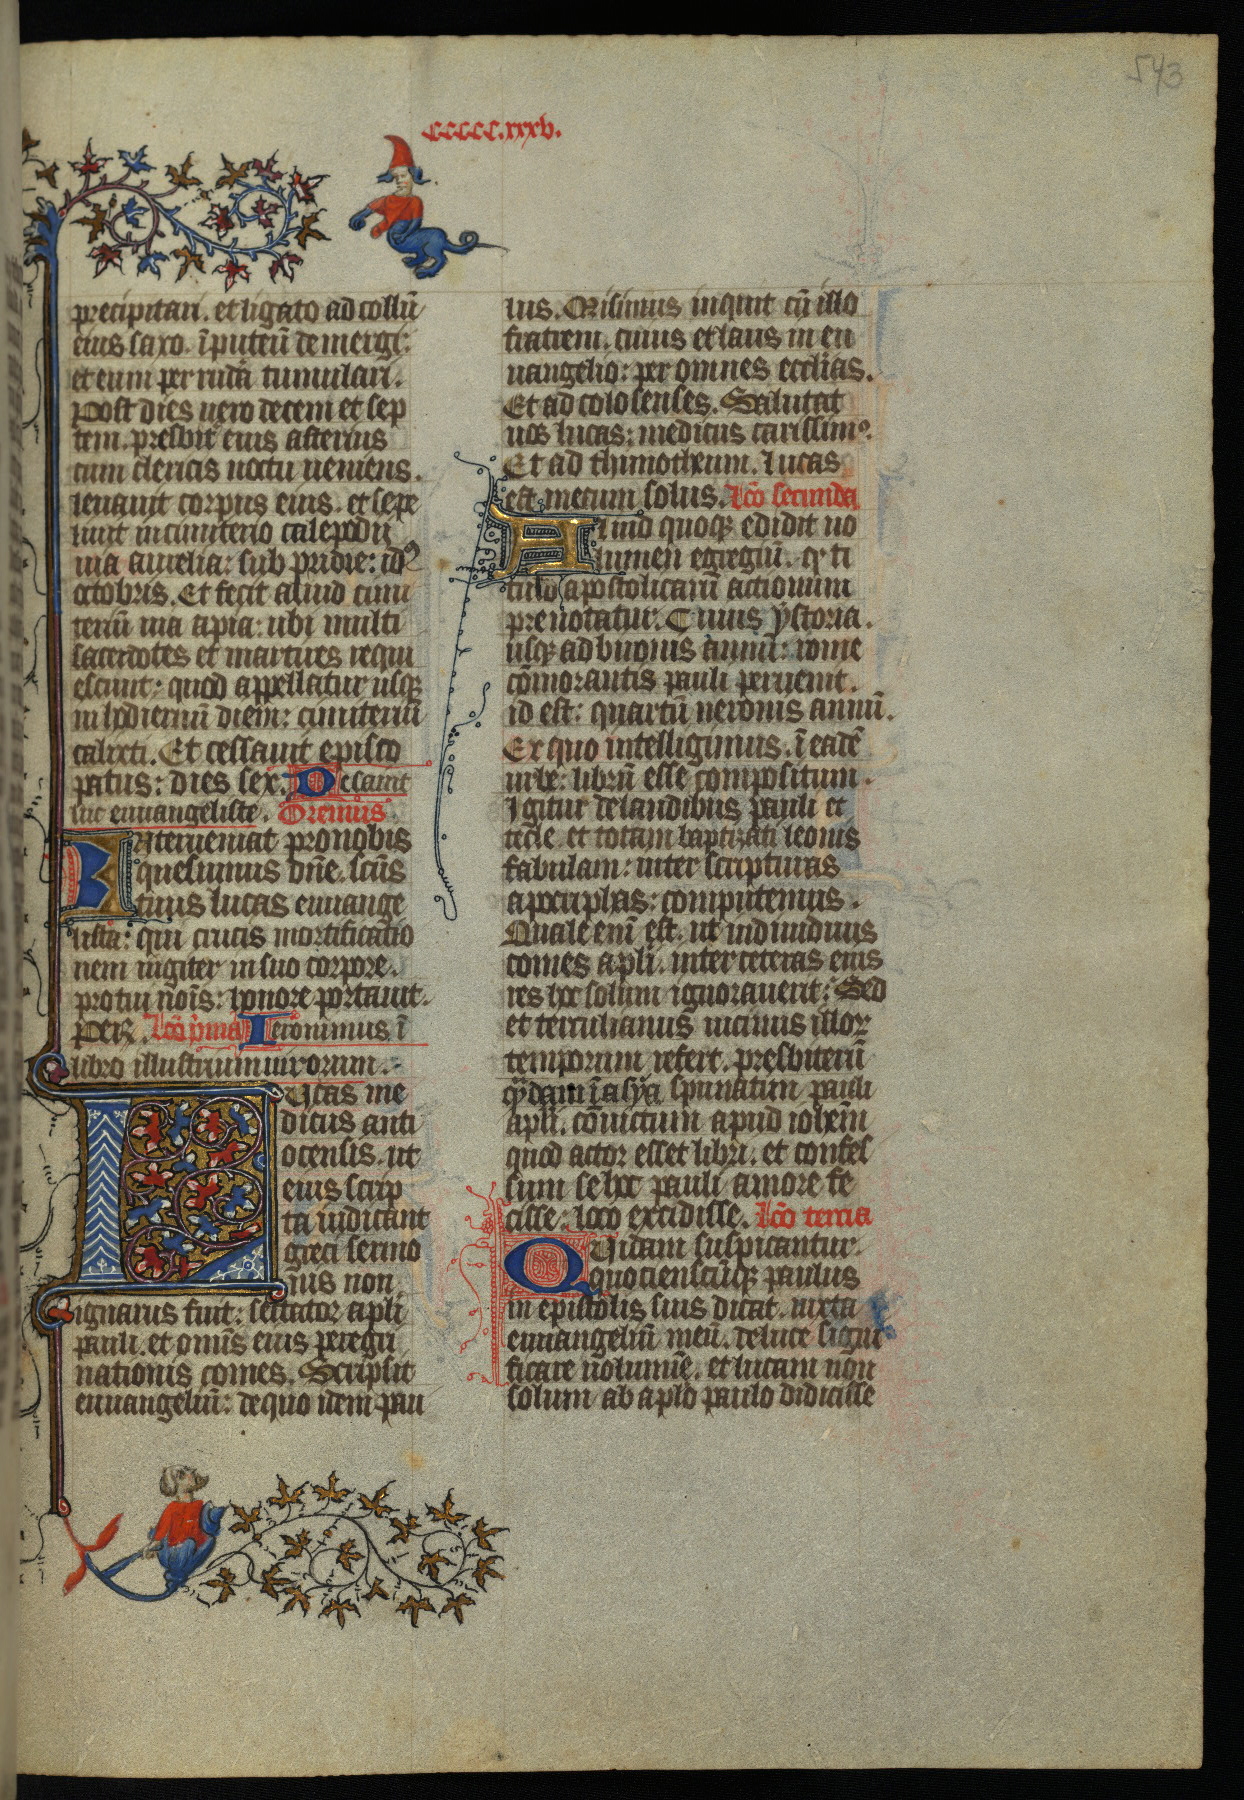 543
ccccc.xxxv.
precipitari. et ligato ad collū
eius saxo. ī puteū demergi:
et eum per ruda tumulari.
Post dies uero decem et sep
tem. presbit̄ eius asterius
cum clericis noctu ueniens.
leuauit corpus eius. et sepe
liuit in cimiterio calepodii
uia aurelia: sub pridie: id
octobris. Et fecit aliud cimi
teriū uia apia: ubi multi
sacerdotes et martires requi
escunt: quod appellatur usq;
in hodiernū diem: cimiteriū
calixti. Et cessauit episco
patus: dies sex. De sancti
luc euuangeliste. Oremus
Interueniat pro nobis
quesumus dn̄e. scūs
tuus lucas euuange
lista: qui crucis mortificatio
nem iugiter in suo corpore.
pro tui nōis: honore portauit.
Per. Lc̄o p̄ma Ieronimus ī
libro illustrium uirorum.
Lucas me
dicus anti
ocensis. ut
eius scrip
ta indicant
greci sermo
nis non
ignarus fuit: sectator apl̄i
pauli. et omīs eius peregri
nationis comes. Scripsit
euuangeliū: de quo idem pau
lus. Misimus inquit cū illo
fratrem. cuius et laus in eu
uangelio: per omnes ecclīas.
Et ad colosenses. Salutat
uos lucas: medicus carissim9.
Et ad thimotheum. lucas
est mecum solus. Lc̄o secunda
Aliud quoq; edidit uo
lumen egregiū. q ti
tulo apostolicarū actionum
prenotatur. Cuius ystoria.
usq; ad biuonis annū: rome
cōmorantis pauli peruenit.
id est: quartū neronis annū.
Ex quo intelligimus. ī eadē
urbe: librū esse compositum.
Igitur de laudibus pauli et
tecle. et totam baptizati leonis
fabulam: inter scripturas
apocriphas: computemus.
Quale enī est. ut indiuiduus
comes apl̄i. inter ceteras eius
res hoc solum ignorauerit: Sed
et terculianus uicinus illoꝝ
temporum refert. presbiterū
q̄dam ī asya spunatim pauli
apl̄i. cōuictum apud ioh̄em
quod actor esset libri. et confes
sum se hoc pauli amore fe
cisse: loco excidisse. Lc̄o tercia
Quidam suspicantur
quociensciq; paulus
in epistolis suis dicat. iuxta
euuangeliū meū. de luce signi
ficare uolumīe. et lucam non
solum ab aplo paulo didicisse